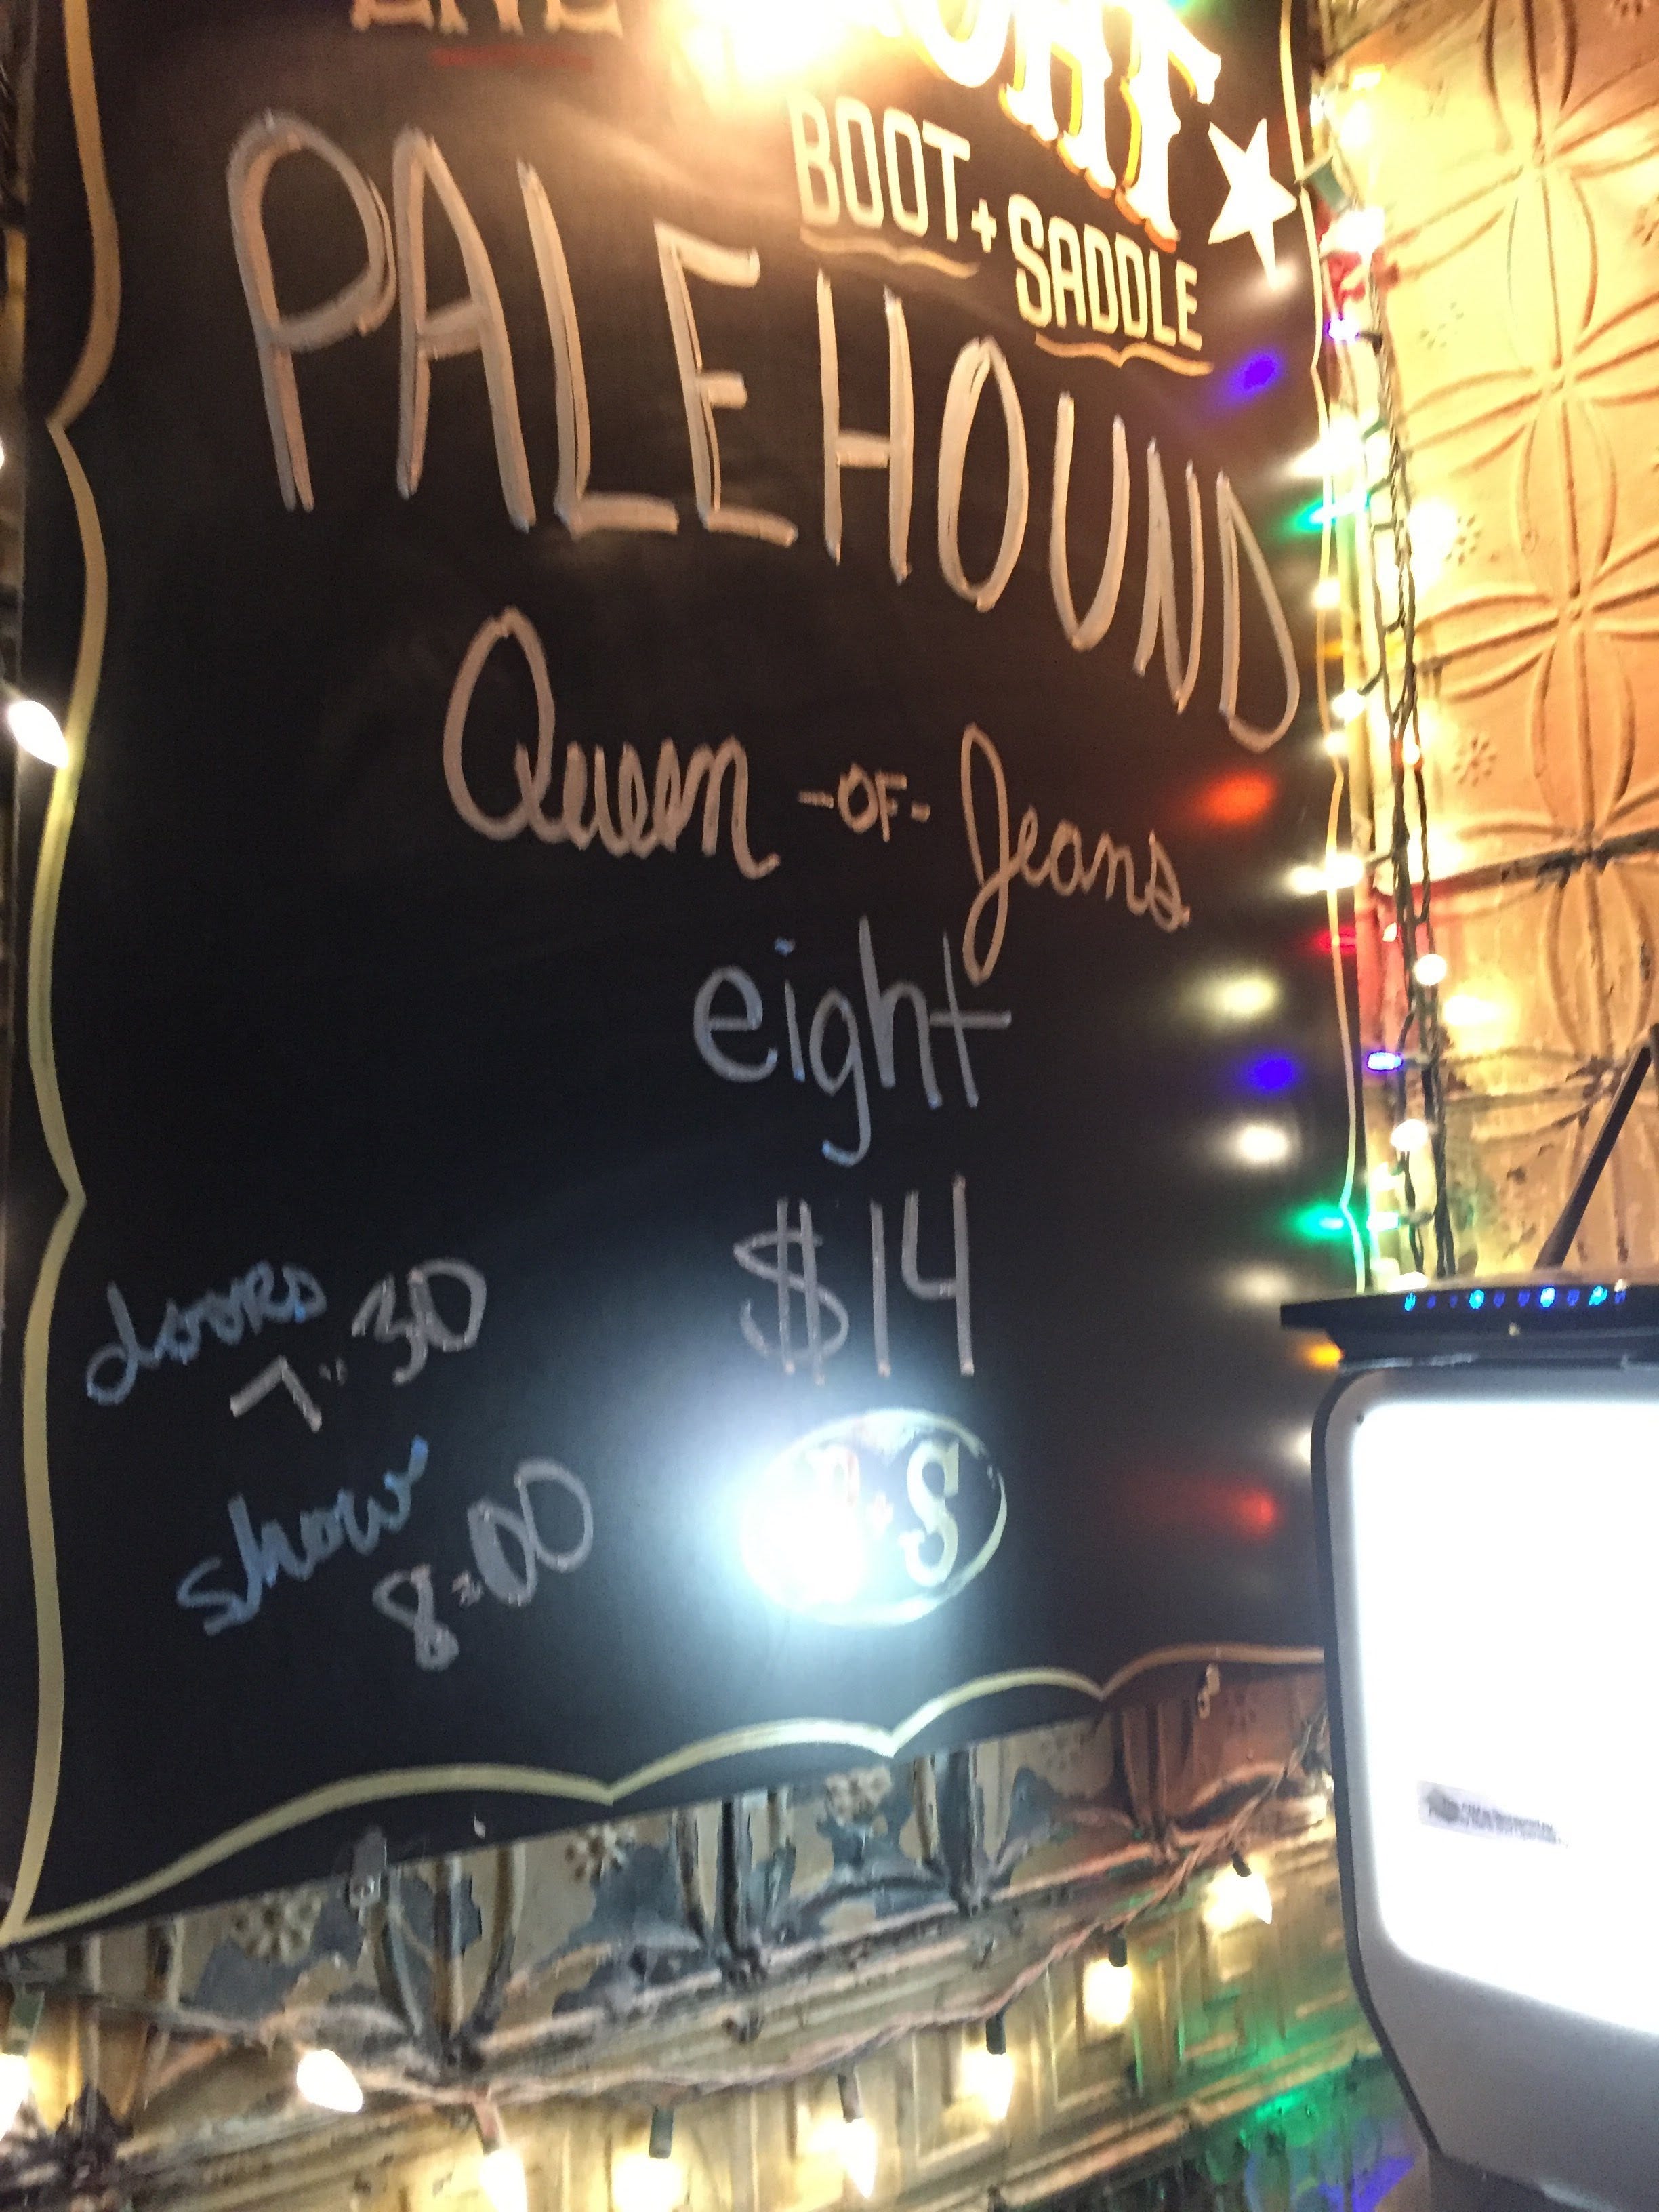 BOOT + SADDLE
PALEHOUND
Queen -OF- Jeans
eight
$14
doors
7:30
show
8:00
B+S